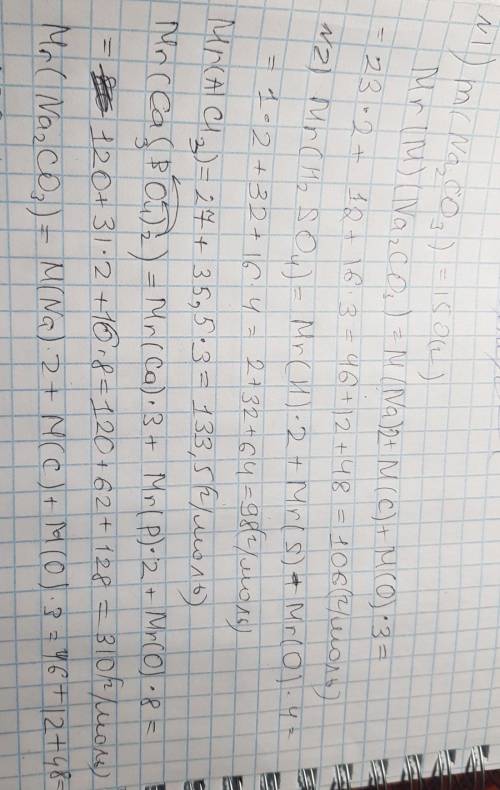 №1) m(Na₂CO₃) = 150(г)
Mr(M)(Na₂CO₃) = M(Na)2 + M(C) + M(O)·3 =
= 23·2 + 12 + 16·3 = 46 + 12 + 48 = 106(г/моль)
№2) Mr(H₂SO₄) = Mr(H)·2 + Mr(S) + Mr(O)·4 =
= 1·2 + 32 + 16·4 = 2 + 32 + 64 = 98(г/моль)
Mr(AlCl₃) = 27 + 35,5·3 = 133,5(г/моль)
Mr(Ca₃(PO₄)₂) = Mr(Ca)·3 + Mr(P)·2 + Mr(O)·8 =
= 120 + 31·2 + 16·8 = 120 + 62 + 128 = 310(г/моль)
Mr(Na₂CO₃) = M(Na)·2 + M(C) + M(O)·3 = 46 + 12 + 48 =